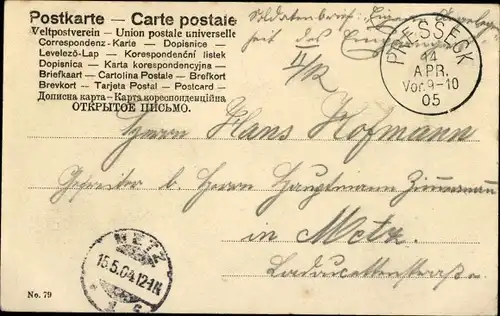 Postkarte — Carte postale
Weltpostverein — Union postale universelle
Correspondenz-Karte — Dopisnice —
Levelező-Lap — Korespondenční listek
Dopisnica — Karta korespondencyjna —
Briefkaart — Cartolina Postale — Brefkort
Brevkort — Tarjeta Postal — Postcard —
Дописна карта — Карта кореспонденційна
ОТКРЫТОЕ ПИСЬМО.
Soldatenbrief. Eigene Angelegen-
heit des Empfängers
II/12
PRESSECK
14
APR.
Vor. 9-10
05
Herrn Hans Hofmann
Gefreiter b. Herrn Hauptmann
in Metz.
METZ
15.5.04.12-1N
No. 79